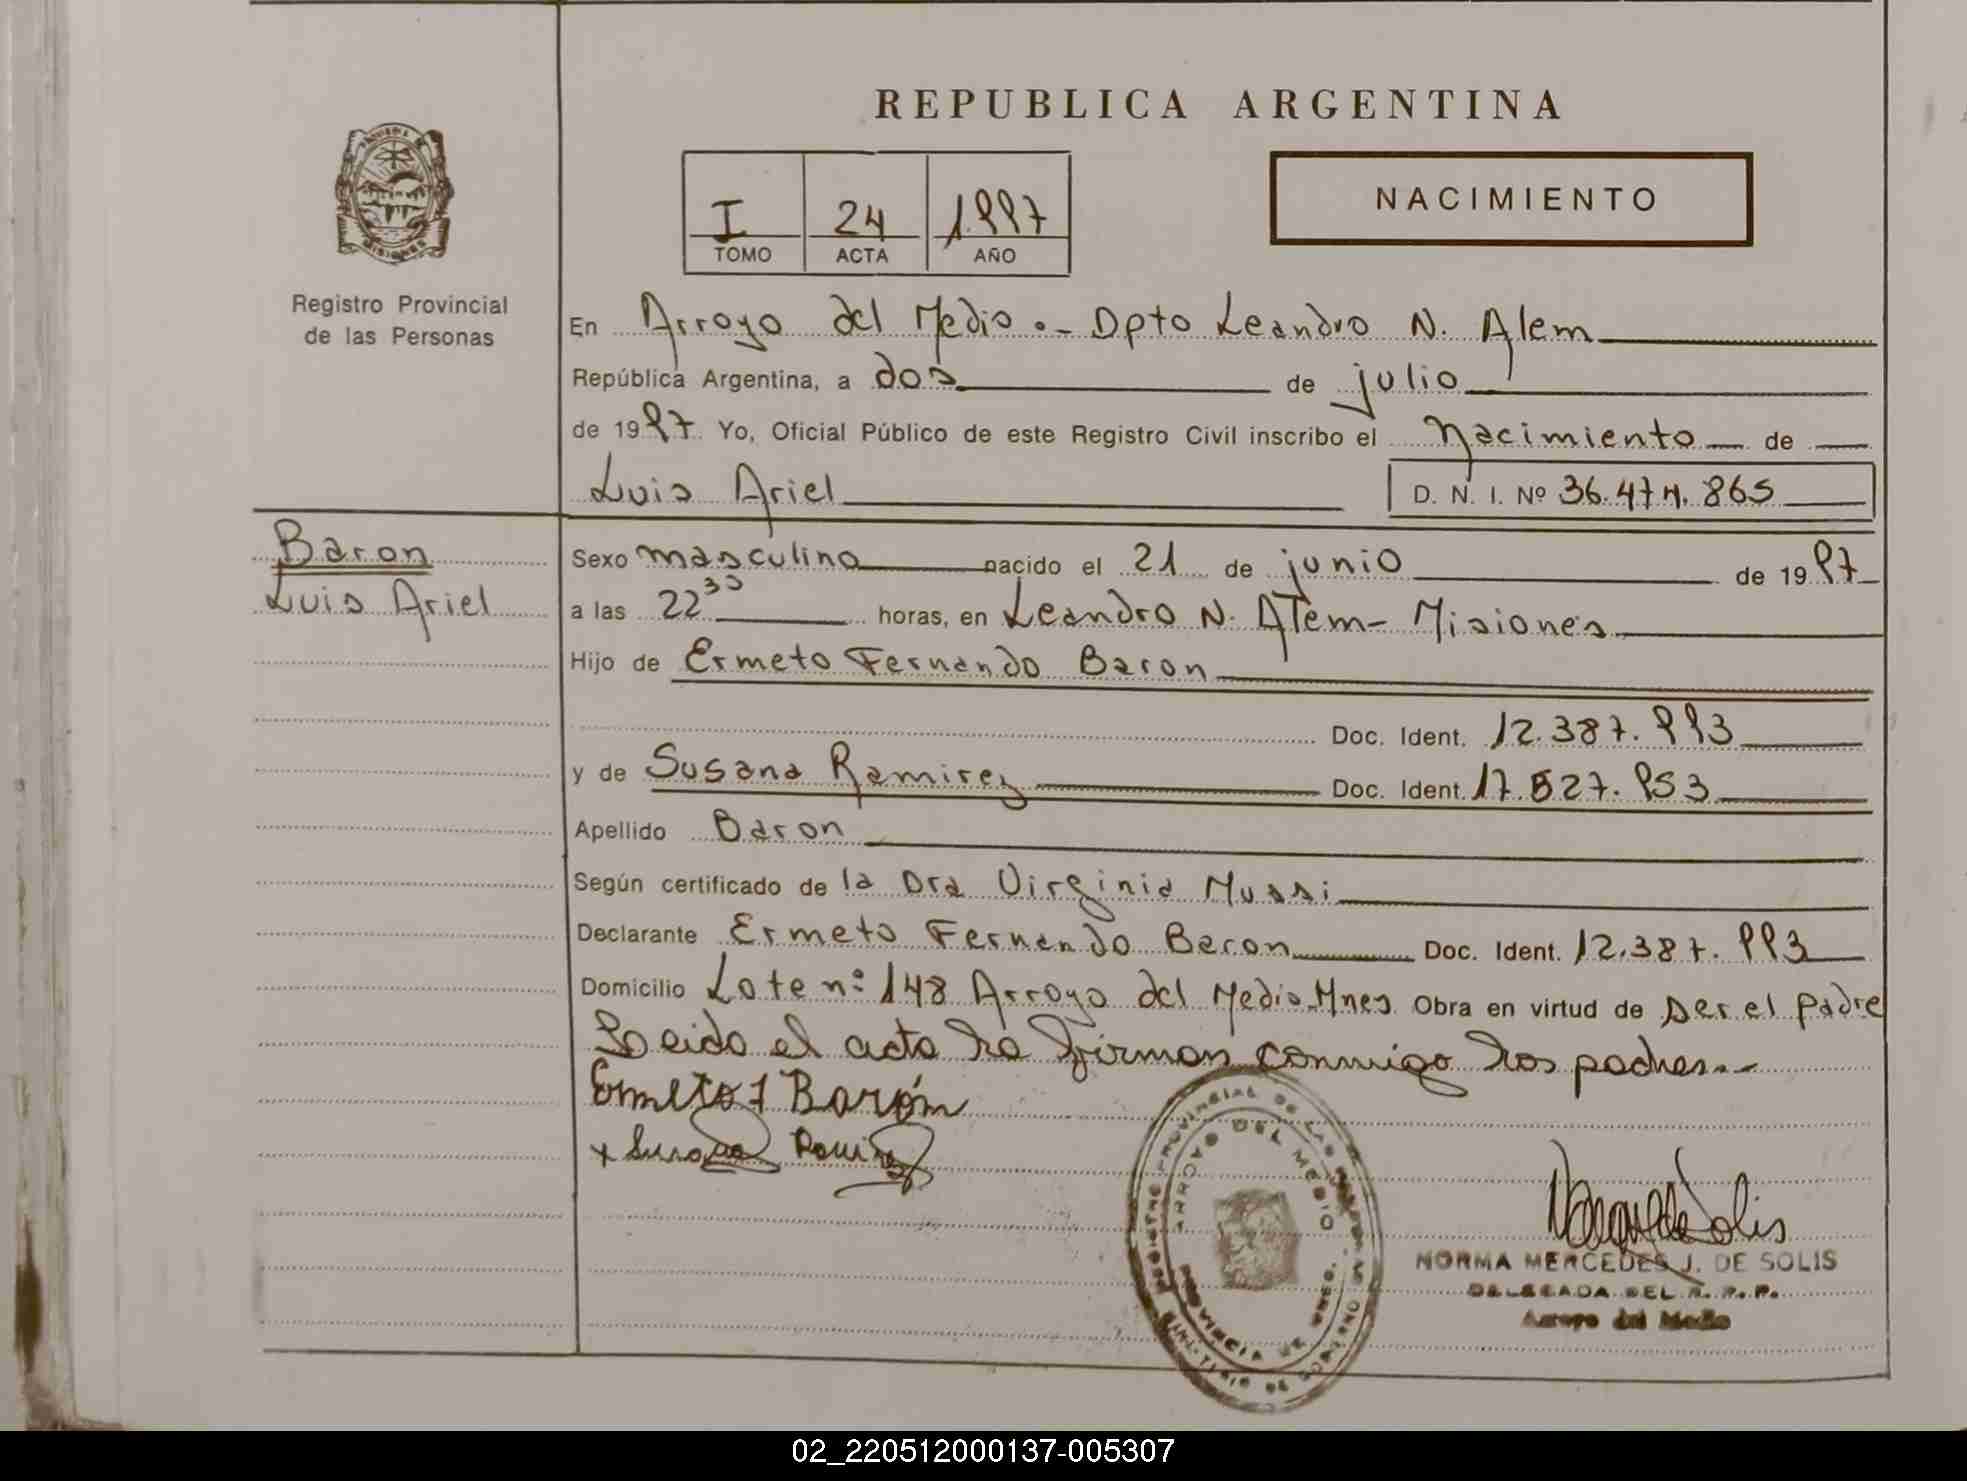 REPUBLICA ARGENTINA
NACIMIENTO
I 24 1.997
TOMO ACTA AÑO
Registro Provincial
de las Personas
En Arroyo del Medio.- Dpto Leandro N. Alem
República Argentina, a dos de julio
de 1997 Yo, Oficial Público de este Registro Civil inscribo el Nacimiento de
Luis Ariel D. N. I. Nº 36.474.865
Baron
Luis Ariel
Sexo masculino nacido el 21 de junio de 1997
a las 22 30 horas, en Leandro N. Alem - Misiones
Hijo de Ermeto Fernando Baron
Doc. Ident. 12.387.993
y de Susana Ramirez Doc. Ident. 17.527.953
Apellido Baron
Según certificado de la Dra Virginia Mussi
Declarante Ermeto Fernando Baron Doc. Ident. 12.387.993
Domicilio Lote nº 148 Arroyo del Medio-Mnes Obra en virtud de ser el padre
Leida el acta la firman conmigo los padres.-
Ermeto F Barón
x Susana Ramirez
REGISTRO PROVINCIAL DE LAS PERSONAS
ARROYO DEL MEDIO
PROVINCIA DE MNES.
NORMA MERCEDES J. DE SOLIS
DELEGADA DEL R. P. P.
Arroyo del Medio
02_220512000137-005307